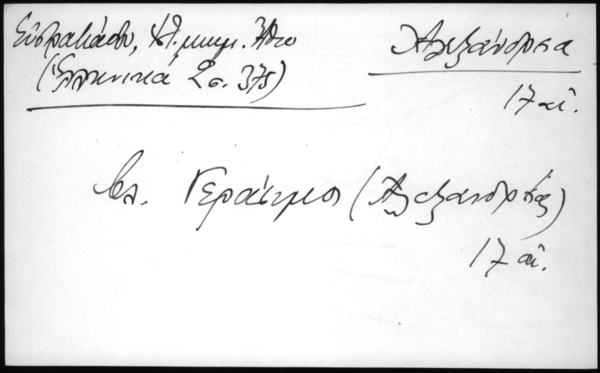 Εὐστρατιάδου, Ἁγ. μνημ. Ἄθω
(Ἑλληνικά 2 σ. 375)
Ἀλεξάνδρεια
17 αἰ.
βλ. Γεράσιμος (Ἀλεξανδρείας)
17 αἰ.